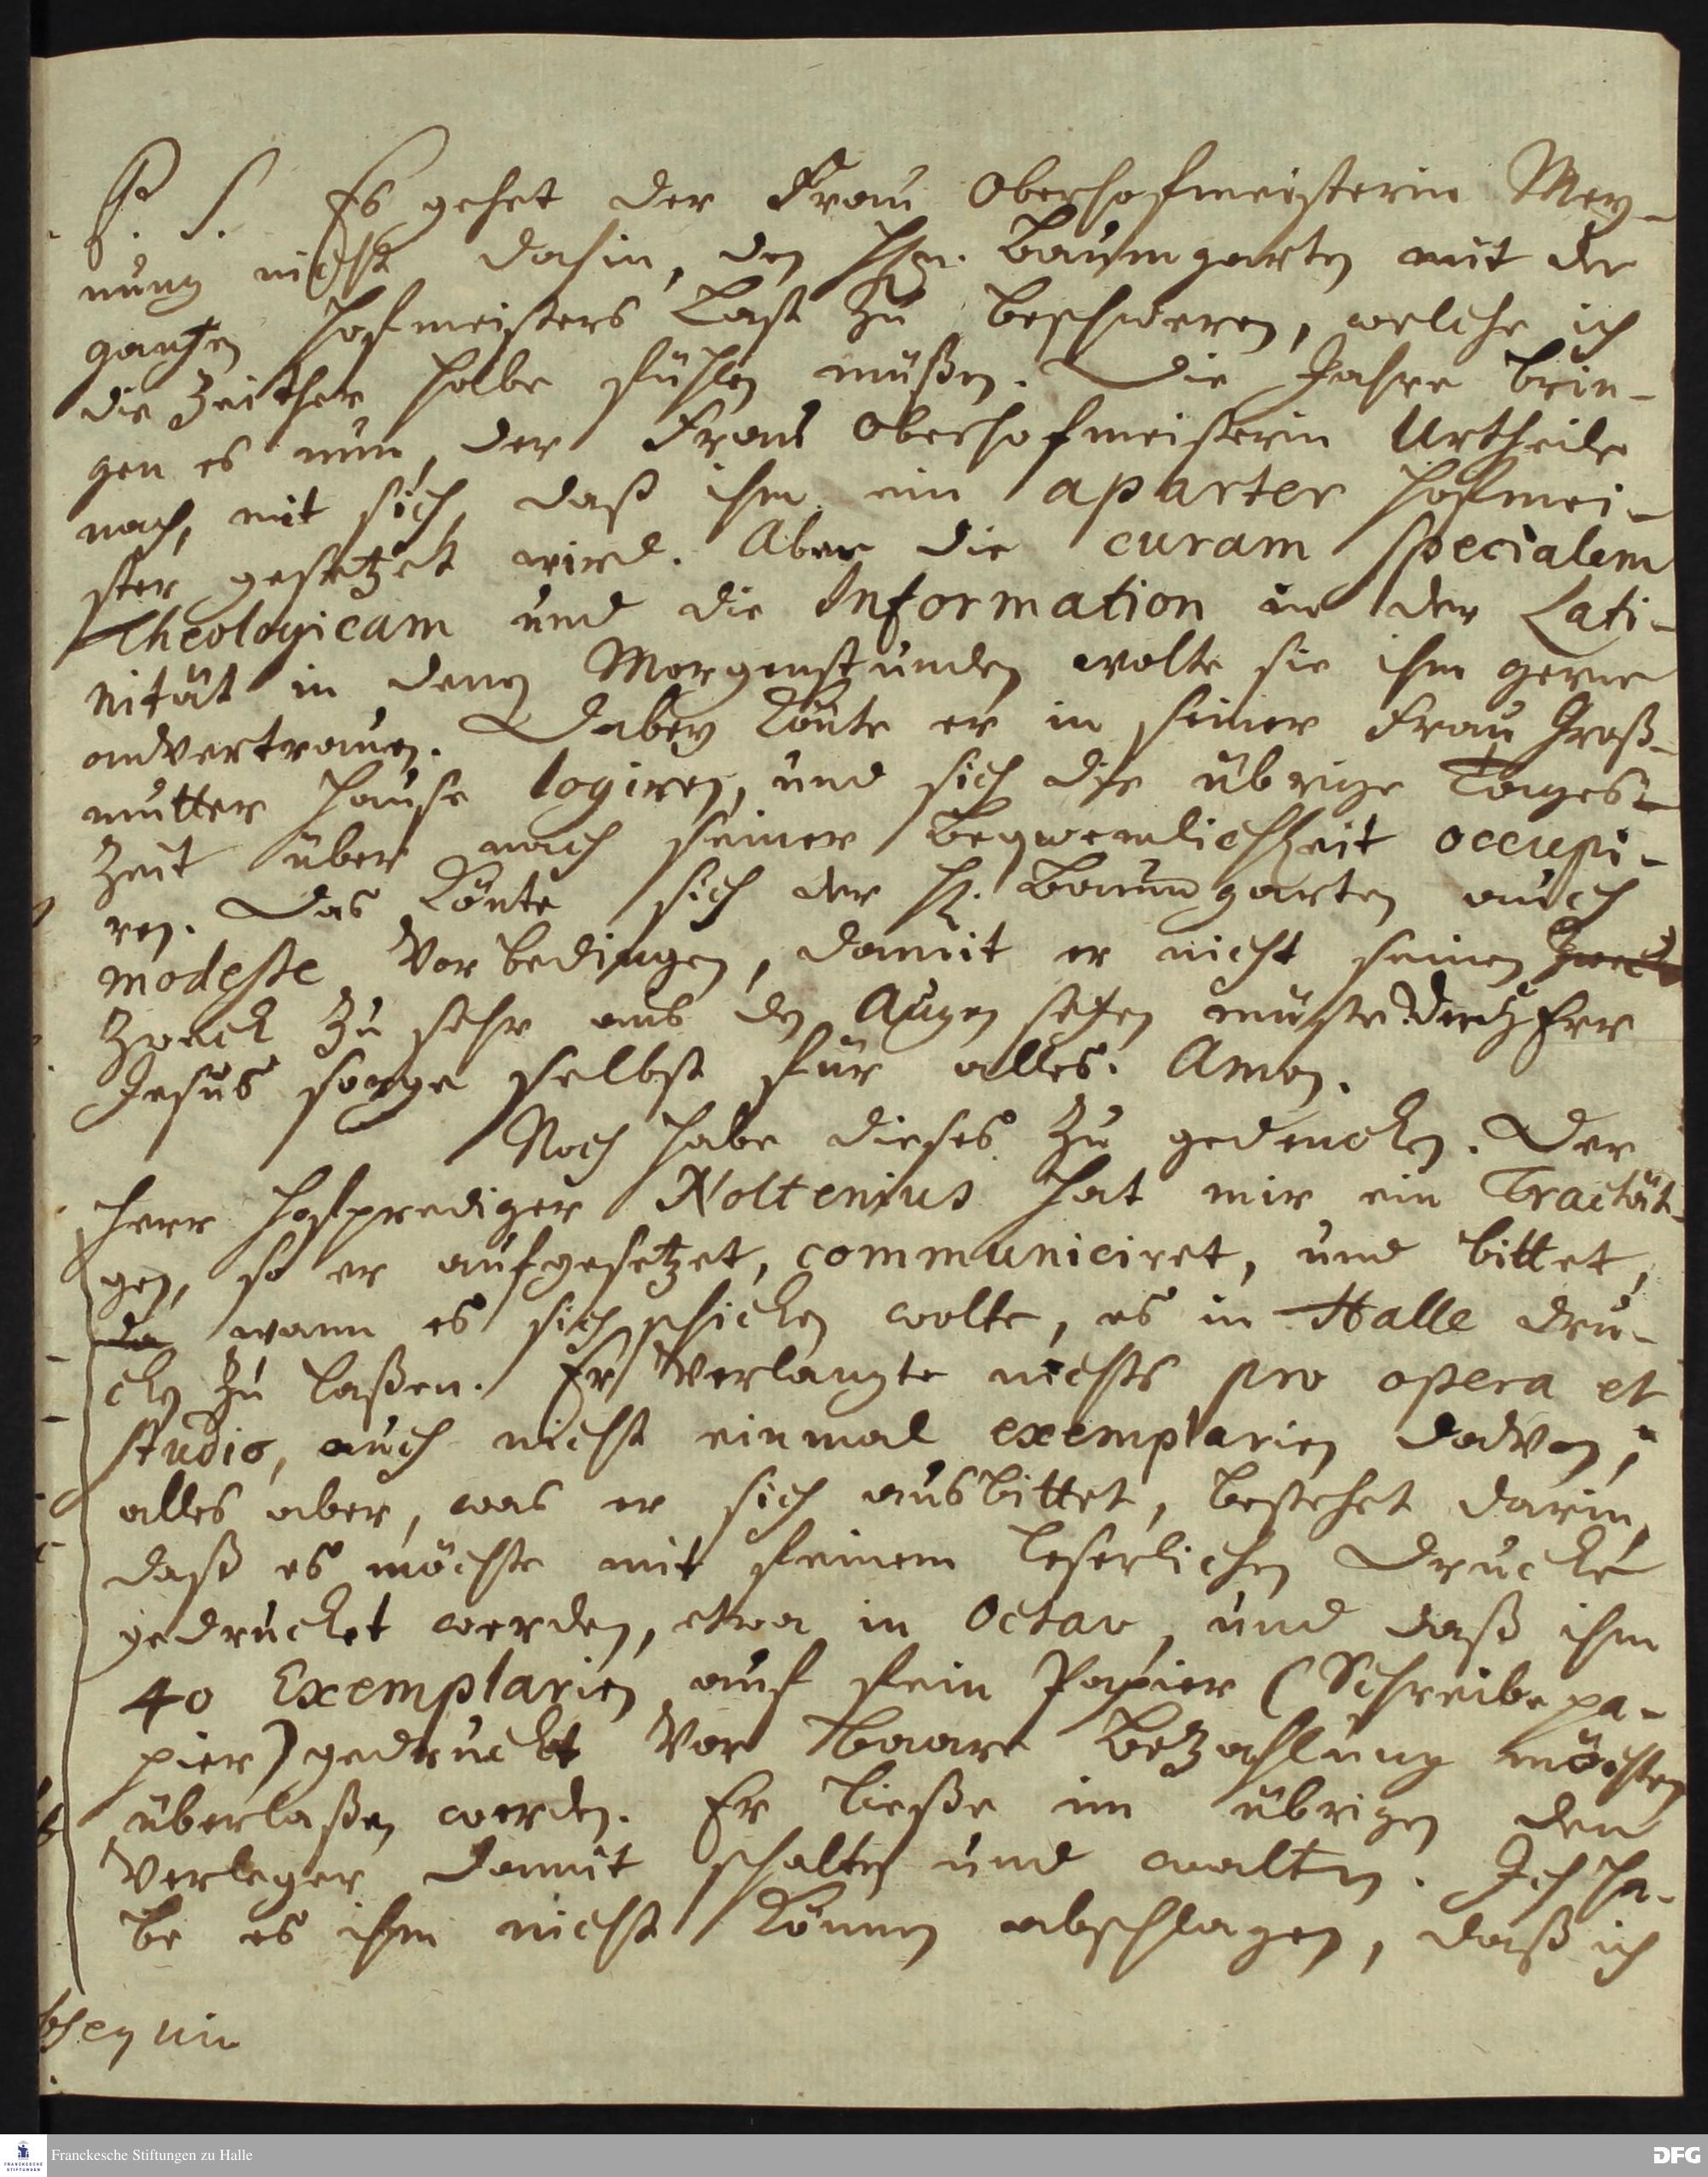 P. S. Es gehet der Frau Oberhofmeisterin Mey-
nung nicht dahin, den Hrn. Baumgarten mit der
gantzen Hofmeisters Last zu beschweren, welche ich
die Zeither habe fühlen müßen. Die Jahre brin-
gen es nun, der Frau Oberhofmeisterin Urtheile
nach, mit sich, daß ihm ein aparter Hofmei-
ster gesetzet wird. Aber die curam specialem
Theologicam und die Information in der Lati-
nität in denen Morgenstunden wolte sie ihm gerne
anvertrauen. Dabey könte er in seiner Frau Groß-
mutter Hause logiren, und sich die übrige Tages-
Zeit über nach seiner Beqvemlichkeit occupi-
ren. Das könte sich der H. Baumgarten auch
modeste vorbedingen, damit er nicht seinen Zweck
Zweck zu sehr aus den Augen setzen müste. Der Herr
Jesus sorge selbst für alles. Amen.
Noch habe dieses zu gedencken. Der
Herr Hofprediger Noltenius hat mir ein Tractät-
gen, so er aufgesetzet, communiciret, und bittet,
da wann es sich schicken wolte, es in Halle dru-
cken zu laßen. Er verlangte nichts pro opera et
studio, auch nicht einmal exemplarien davon;
alles aber, was er sich ausbittet, bestehet darin,
daß es möchte mit feinem leserlichen Drucke
gedrucket werden, etwa in Octav, und daß ihm
40 Exemplarien auf fein Papier (Schreibepa-
pier) gedruckt vor baare Bezahlung möchten
überlaßen werden. Er ließe im übrigen den
Verleger damit schalten und walten. Ich ha-
be es ihm nicht können abschlagen, daß ich
Franckesche Stiftungen zu Halle
DFG